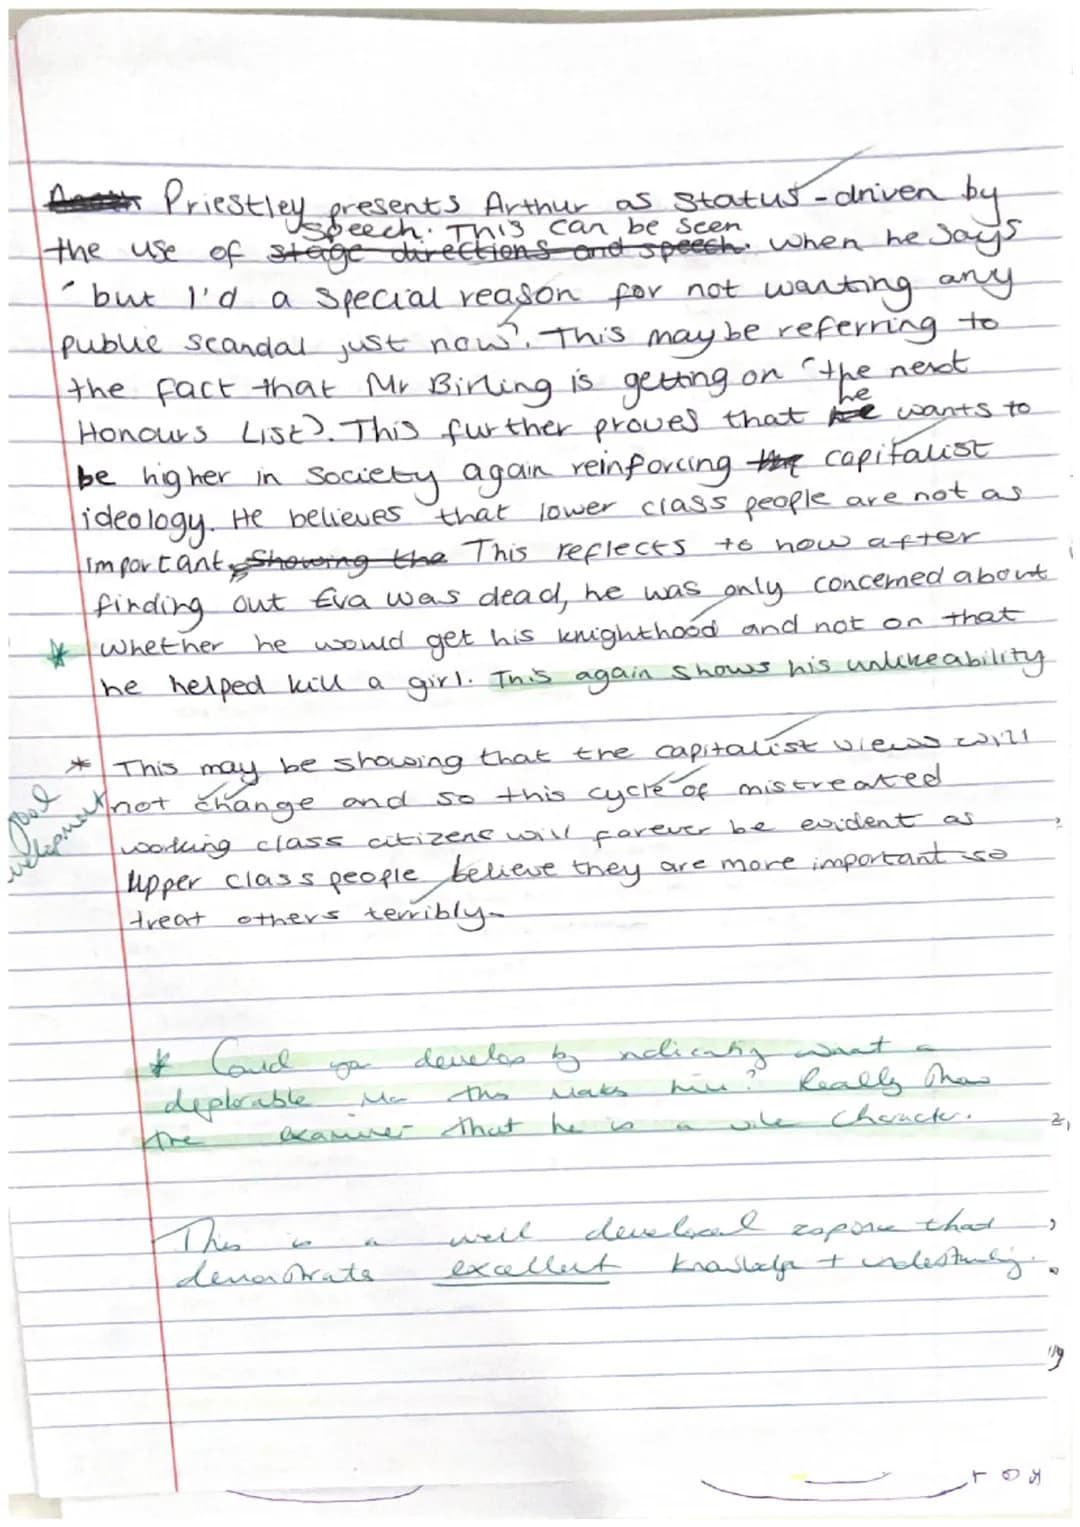 Priestley presents Arthur as status-driven by
the use of speech. This can be seen
stage directions and speech. when he says
"but I'd a special reason for not wanting any
public scandal just now". This may be referring to
the fact that Mr Birling is getting on "the next
Honours List". This further proves that he wants to
be higher in society again reinforcing the capitalist
ideology. He believes that lower class people are not as
important, showing the This reflects to how after
finding out Eva was dead, he was only concerned about
whether he would get his knighthood and not on that
he helped kill a girl. This again shows his unlikeability
* This may be showing that the capitalist views will
not change and so this cycle of mistreated
working class citizens will forever be evident as
upper class people believe they are more important so
treat others terribly.
good
development
* Could you develop by indicating what a
deplorable man this makes him? Really show
the examiner that he is a vile character.
This is a well developed response that
demonstrates excellent knowledge + understanding.